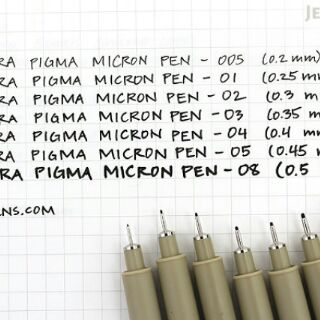 JE
RA PIGMA MICRON PEN - 005 (0.2 mm)
RA PIGMA MICRON PEN - 01 (0.25 mm
RA PIGMA MICRON PEN - 02 (0.3 m
RA PIGMA MICRON PEN - 03 (0.35 m
RA PIGMA MICRON PEN - 04 (0.4 mm
RA PIGMA MICRON PEN - 05 (0.45 m
RA PIGMA MICRON PEN - 08 (0.5
NS.COM